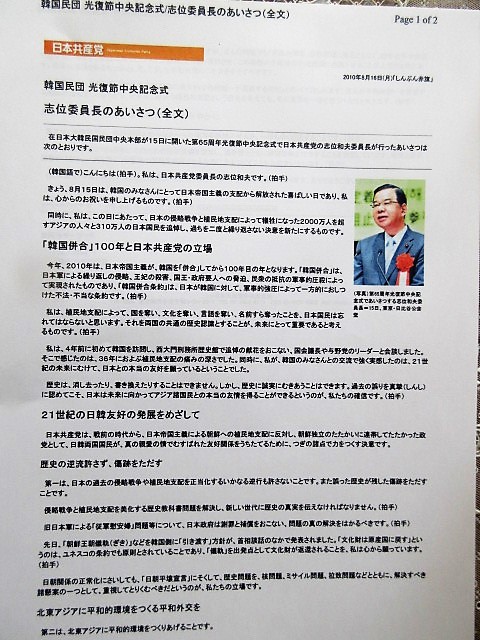 韓国民団 光復節中央記念式/志位委員長のあいさつ(全文)
Page 1 of 2
日本共産党
2010年8月16日(月)「しんぶん赤旗」
韓国民団 光復節中央記念式
志位委員長のあいさつ(全文)
在日本大韓民国民団中央本部が15日に開いた第65周年光復節中央記念式で日本共産党の志位和夫委員長が行ったあいさつは
次のとおりです。
(韓国語で)こんにちは(拍手)。私は、日本共産党委員長の志位和夫です。(拍手)
きょう、8月15日は、韓国のみなさんにとって日本帝国主義の支配から解放された喜ばしい日であり、私
は、心からのお祝いを申し上げるものです。(拍手)
同時に、私は、この日にあたって、日本の侵略戦争と植民地支配によって犠牲になった2000万人を超
すアジアの人々と310万人の日本国民を追悼し、過ちを二度と繰り返さない決意を新たにするものです。
「韓国併合」100年と日本共産党の立場
今年、2010年は、日本帝国主義が、韓国を「併合」してから100年目の年となります。「韓国併合」は、
日本軍による繰り返しの侵略、王妃の殺害、国王・政府要人への脅迫、民衆の抵抗の軍事的圧殺によっ
て実現されたものであり、「韓国併合条約」は、日本が韓国に対して、軍事的強圧によって一方的におしつ
けた不法・不当な条約です。(拍手)
私は、植民地支配によって、国を奪い、文化を奪い、言語を奪い、名前すら奪ったことを、日本国民は忘
れてはならないと思います。それを両国の共通の歴史認識とすることが、未来にとって重要であると考え
るものです。(拍手)
私は、4年前に初めて韓国を訪問し、西大門刑務所歴史館で追悼の献花をおこない、国会議長や与野党のリーダーと会談しました。
そこで感じたのは、36年におよぶ植民地支配の痛みの深さでした。同時に、私が、韓国のみなさんとの交流で強く実感したのは、21世
紀の未来にむけて、日本との本当の友好を願っているということでした。
歴史は、消し去ったり、書き換えたりすることはできません。しかし、歴史に誠実にむきあうことはできます。過去の誤りを真摯(しんし)
に認めてこそ、日本は未来に向かってアジア諸国民との本当の友情を得ることができるというのが、私たちの確信です。(拍手)
(写真)第65周年光復節中央記
念式であいさつする志位和夫委
員長=15日、東京・日比谷公会
堂
21世紀の日韓友好の発展をめざして
日本共産党は、戦前の時代から、日本帝国主義による朝鮮への植民地支配に反対し、朝鮮独立のたたかいに連帯してたたかった政
党として、日韓両国国民が、真の親愛の情でむすばれた友好関係をうちたてるために、つぎの諸点で力をつくす決意です。
歴史の逆流許さず、傷跡をただす
第一は、日本の過去の侵略戦争や植民地支配を正当化するいかなる逆行も許さないことです。また誤った歴史が残した傷跡をただす
ことです。
侵略戦争と植民地支配を美化する歴史教科書問題を解決し、新しい世代に歴史の真実を伝えなければなりません。(拍手)
旧日本軍による「従軍慰安婦」問題等について、日本政府は謝罪と補償をおこない、問題の真の解決をはかるべきです。(拍手)
先日、「朝鮮王朝儀軌(ぎき)」などを韓国側に「引き渡す」方針が、首相談話のなかで発表されました。「文化財は原産国に戻す」とい
うのは、ユネスコの条約でも原則とされていることであり、「儀軌」を出発点として文化財が返還されることを、私は心から願っています。
(拍手)
日朝関係の正常化にさいしても、「日朝平壌宣言」にそくして、歴史問題を、核問題、ミサイル問題、拉致問題などとともに、解決すべき
諸懸案の一つとして、重視してとりくむべきだというのが、私たちの立場です。
北東アジアに平和的環境をつくる平和外交を
第二は、北東アジアに平和的環境をつくりあげることです。